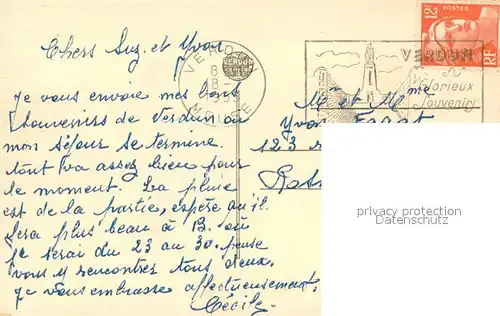 Chers Suz et Yvon
Je vous envoie mes bons
Souvenirs de Verdun ou
mon séjour se termine.
tout va assez bien pour
le moment. La pluie
est de la partie, espère qu'il
sera plus beau à B. où
je serai du 23 au 30. pense
vous y rencontrer tous deux.
Je vous embrasse affectueusement,
Cécile.
VERDUN
MEUSE
POSTES
12F
RF
VERDUN
Glorieux
Souvenirs
Mr et Mme
Yvon
123
privacy protection
Datenschutz